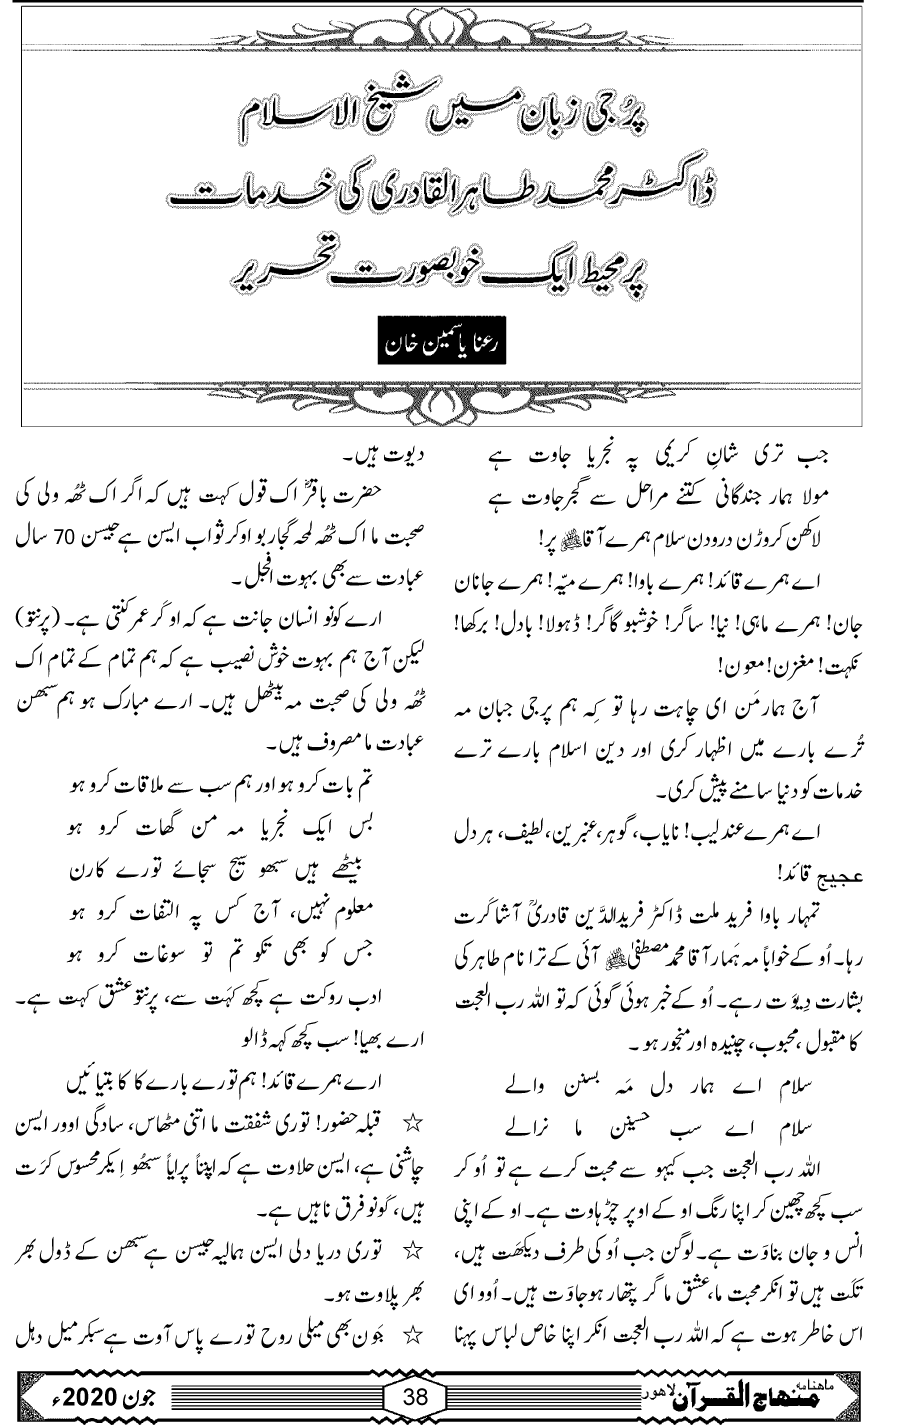 پرُجی زبان میں شیخ الاسلام
ڈاکٹر محمد طاہرالقادری کی خدمات
پر محیط ایک خوبصورت تحریر
رعنا یاسمین خان
جب تری شانِ کریمی پہ نجریا جاوت ہے
مولا ہمار جندگانی کتنے مراحل سے گجر جاوت ہے
لاکھن کروڑن درودن سلام ہمرے آقا ﷺ پر!
اے ہمرے قائد! ہمرے باوا! ہمرے میّہ! ہمرے جانان
جان! ہمرے ماہی! نیا! ساگر! خوشبو گاگر! ڈہولا! بادل! برکھا!
نکہت! مغزن! معون!
آج ہمار مَن ای چاہت رہا تو کِہ ہم پرجی جبان مہ
تُرے بارے میں اظہار کری اور دین اسلام بارے ترے
خدمات کو دنیا سامنے پیش کری۔
اے ہمرے عندلیب! نایاب، گوہر، عنبرین، لطیف، ہر دل
عجیج قائد!
تمہار باوا فرید ملت ڈاکٹر فریدالدَّین قادریؒ آشا گرت
رہا۔ اُو کے خواباً مہ ہَمار آقا محمد مصطفیٰ ﷺ آئی کے ترا نام طاہر کی
بشارت دِیوَت رہے۔ اُو کے خبر ہوئی گوئی کہ تو اللہ رب العجت
کا مقبول، محبوب، چنیدہ اور منجور ہو۔
سلام اے ہمار دل مَہ بسنن والے
سلام اے سب حسینن ما نرالے
اللہ رب العجت جب کیہو سے محبت کرے ہے تو اُو کر
سب کچھ چھین کر اپنا رنگ او کے اوپر چڑہاوت ہے۔ او کے اپنی
انس و جان بناوَت ہے۔ لوگن جب اُو کی طرف دیکھت ہیں،
تکَت ہیں تو انکر محبت ما، عشق ما گر پتھار ہوجاوَت ہیں۔ اُوو ای
اس خاطر ہوت ہے کہ اللہ رب العجت انکر اپنا خاص لباس پہنا
دیوت ہیں۔
حضرت باقرؒ اک قول کہت ہیں کہ اگر اک ٹھہ ولی کی
صحبت ما اک ٹھہ لمحہ گجاربو اوکر ثواب ایسن ہے جیسن 70 سال
عبادت سے بھی بہوت افجل۔
ارے کونو انسان جانت ہے کہ او کَر عمر کتنی ہے۔ (پرنتو)
لیکن آج ہم بہوت خوش نصیب ہے کہ ہم تمام کے تمام اک
ٹھہ ولی کی صحبت مہ بیٹھل ہیں۔ ارے مبارک ہو ہم سبھن
عبادت ما مصروف ہیں۔
تم بات کرو ہو اور ہم سب سے ملاقات کرو ہو
بس ایک نجریا مہ من گھات کرو ہو
بیٹھے ہیں سبھو سیج سجائے تورے کارن
معلوم نہیں، آج کس پہ التفات کرو ہو
جس کو بھی تکو تم تو سوغات کرو ہو
ادب روکت ہے کچھ کہَت سے، پرنتو عشق کہت ہے۔
ارے بھیا! سب کچھ کہہ ڈالو
ارے ہمرے قائد! ہم تورے بارے کا کا بتیائیں
☆ قبلہ حضور! توری شفقت ما اتنی مٹھاس، سادگی اوور ایسن
چاشنی ہے، ایسن حلاوت ہے کہ اپنناً پرایاً سبھُو اِیکر محسوس کرَت
ہیں، کونو فرق ناہیں ہے۔
☆ توری دریا دلی ایسن ہمالیہ جیسن ہے سبھن کے ڈول بھر
بھر پلاوت ہو۔
☆ جَون بھی میلی روح تورے پاس آوت ہے سبکر میل دہل
ماہنامہ منہاج القرآن لاہور
38
جون 2020ء